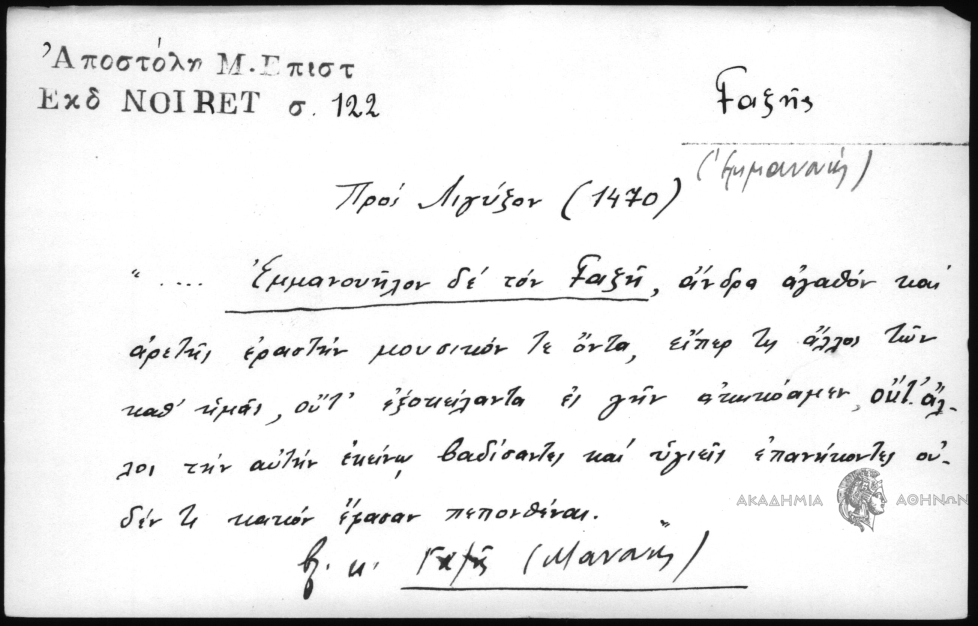 Ἀποστόλη Μ. Επιστ
Εκδ NOIRET σ. 122
Γαξῆς
(Ἐμμανουήλ)
Πρός Λιγύξον (1470)
" .... Ἐμμανουῆλον δέ τόν Γαξῆ, ἄνδρα ἀγαθόν καί
ἀρετῆς ἐραστήν μουσικόν τε ὄντα, εἴπερ τις ἄλλος τῶν
καθ' ἡμᾶς, οὔτ' ἐξοκείλαντα εἰς γῆν ἀκηκόαμεν, οὔτ' ἄλ-
λοι τήν αὐτήν ἐκείνῳ βαδίσαντες καί ὑγιεῖς ἐπανήκοντες οὐ-
δέν τι κακόν ἔφασαν πεπονθέναι.
"
β. κ. Γαζῆς (Μανουήλ)
ΑΚΑΔΗΜΙΑ ΑΘΗΝΩΝ